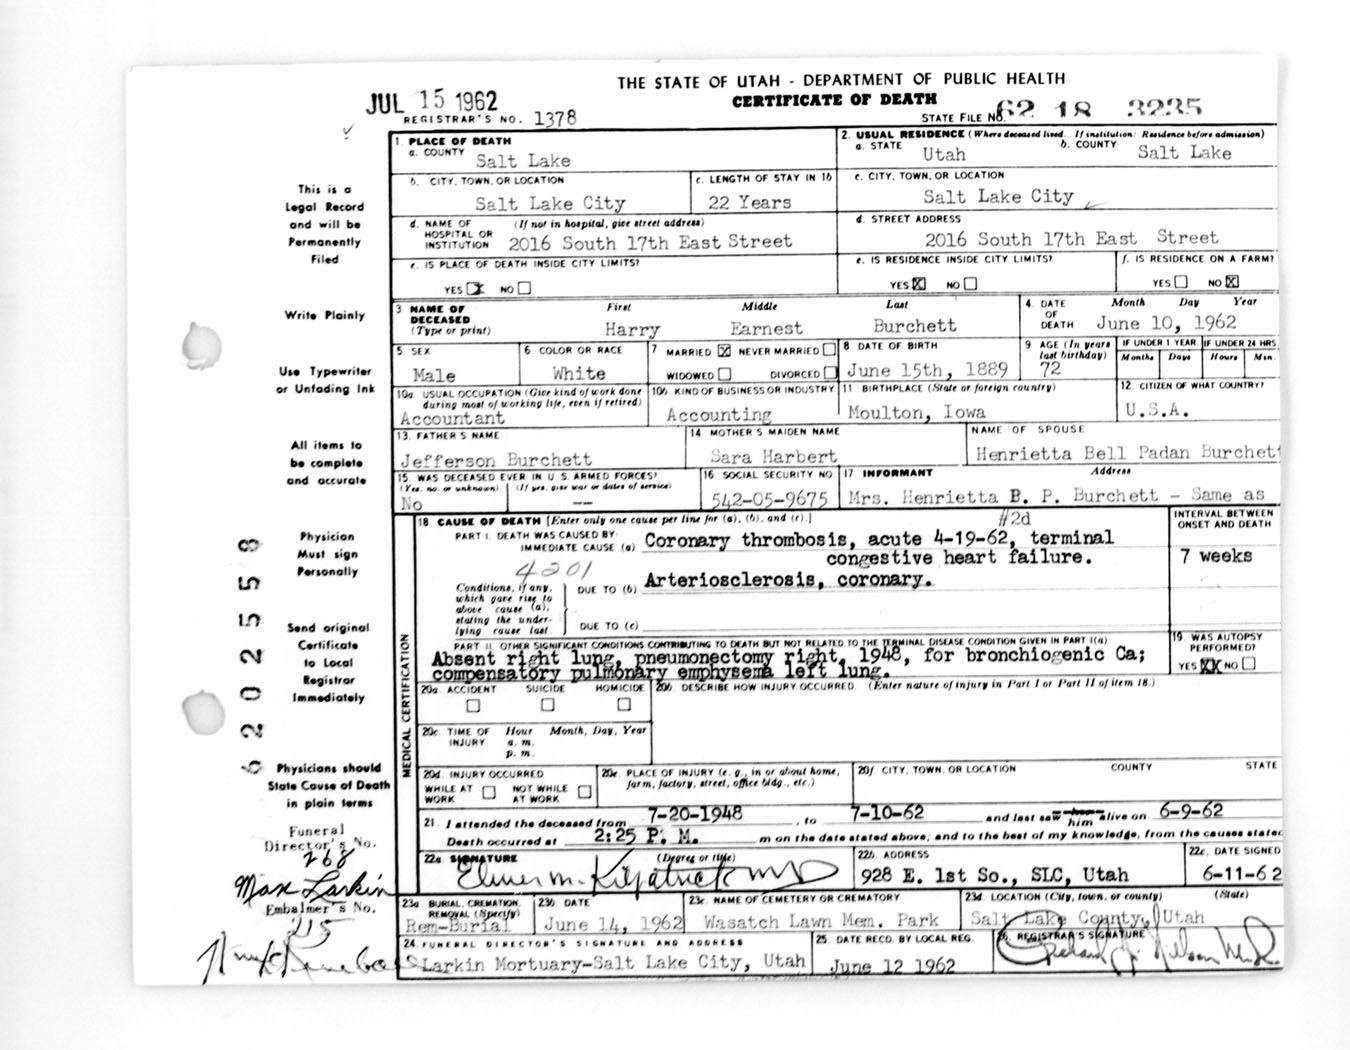 THE STATE OF UTAH - DEPARTMENT OF PUBLIC HEALTH
CERTIFICATE OF DEATH
JUL 15 1962
REGISTRAR'S NO. 1378
STATE FILE NO. 62 18 3235
1. PLACE OF DEATH
a. COUNTY Salt Lake
2. USUAL RESIDENCE (Where deceased lived. If institution: Residence before admission)
a. STATE Utah b. COUNTY Salt Lake
b. CITY, TOWN, OR LOCATION Salt Lake City
c. LENGTH OF STAY IN 1b 22 Years
c. CITY, TOWN, OR LOCATION Salt Lake City
d. NAME OF HOSPITAL OR INSTITUTION (If not in hospital, give street address) 2016 South 17th East Street
d. STREET ADDRESS 2016 South 17th East Street
e. IS PLACE OF DEATH INSIDE CITY LIMITS? YES X NO
e. IS RESIDENCE INSIDE CITY LIMITS? YES X NO
f. IS RESIDENCE ON A FARM? YES NO X
3 NAME OF DECEASED (Type or print) First Middle Last
Harry Earnest Burchett
4. DATE OF DEATH Month Day Year
June 10, 1962
5 SEX Male
6 COLOR OR RACE White
7 MARRIED X NEVER MARRIED WIDOWED DIVORCED
8 DATE OF BIRTH June 15th, 1889
9 AGE (In years last birthday) 72
IF UNDER 1 YEAR Months Days
IF UNDER 24 HRS. Hours Min.
10a. USUAL OCCUPATION (Give kind of work done during most of working life, even if retired) Accountant
10b. KIND OF BUSINESS OR INDUSTRY Accounting
11 BIRTHPLACE (State or foreign country) Moulton, Iowa
12 CITIZEN OF WHAT COUNTRY? U.S.A.
13. FATHER'S NAME Jefferson Burchett
14 MOTHER'S MAIDEN NAME Sara Harbert
NAME OF SPOUSE Henrietta Bell Padan Burchett
15. WAS DECEASED EVER IN U.S. ARMED FORCES? (Yes, no, or unknown) (If yes, give war or dates of service) No --
16 SOCIAL SECURITY NO 542-05-9675
17 INFORMANT Address
Mrs. Henrietta B. P. Burchett - Same as #2d
18 CAUSE OF DEATH [Enter only one cause per line for (a), (b), and (c).]
INTERVAL BETWEEN ONSET AND DEATH
PART I. DEATH WAS CAUSED BY:
IMMEDIATE CAUSE (a) Coronary thrombosis, acute 4-19-62, terminal
congestive heart failure.
7 weeks
4201
Conditions, if any, which gave rise to above cause (a), stating the underlying cause last.
DUE TO (b) Arteriosclerosis, coronary.
DUE TO (c)
PART II. OTHER SIGNIFICANT CONDITIONS CONTRIBUTING TO DEATH BUT NOT RELATED TO THE TERMINAL DISEASE CONDITION GIVEN IN PART I(a)
Absent right lung, pneumonectomy right, 1948, for bronchiogenic Ca;
compensatory pulmonary emphysema left lung.
19. WAS AUTOPSY PERFORMED? YES XX NO
20a. ACCIDENT SUICIDE HOMICIDE
20b. DESCRIBE HOW INJURY OCCURRED. (Enter nature of injury in Part I or Part II of item 18.)
20c. TIME OF INJURY Hour a. m. p. m. Month, Day, Year
20d. INJURY OCCURRED WHILE AT WORK NOT WHILE AT WORK
20e. PLACE OF INJURY (e. g., in or about home, farm, factory, street, office bldg., etc.)
20f. CITY, TOWN, OR LOCATION COUNTY STATE
21. I attended the deceased from 7-20-1948, to 7-10-62 and last saw him alive on 6-9-62
Death occurred at 2:25 P. M. m on the date stated above; and to the best of my knowledge, from the causes stated
22a. SIGNATURE (Degree or title) Elmer M. Kilpatrick MD
22b. ADDRESS 928 E. 1st So., SLC, Utah
22c. DATE SIGNED 6-11-62
23a. BURIAL, CREMATION, REMOVAL (Specify) Rem-Burial
23b. DATE June 14, 1962
23c. NAME OF CEMETERY OR CREMATORY Wasatch Lawn Mem. Park
23d. LOCATION (City, town, or county) (State) Salt Lake County, Utah
24. FUNERAL DIRECTOR'S SIGNATURE AND ADDRESS Larkin Mortuary-Salt Lake City, Utah
25. DATE RECD. BY LOCAL REG. June 12 1962
26. REGISTRAR'S SIGNATURE
MEDICAL CERTIFICATION
This is a
Legal Record
and will be
Permanently
Filed
Write Plainly
Use Typewriter
or Unfading Ink
All items to
be complete
and accurate
Physician
Must sign
Personally
Send original
Certificate
to Local
Registrar
Immediately
Physicians should
State Cause of Death
in plain terms
Funeral
Director's No.
268
Max Larkin
Embalmer's No.